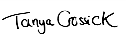 Tanya Gossick